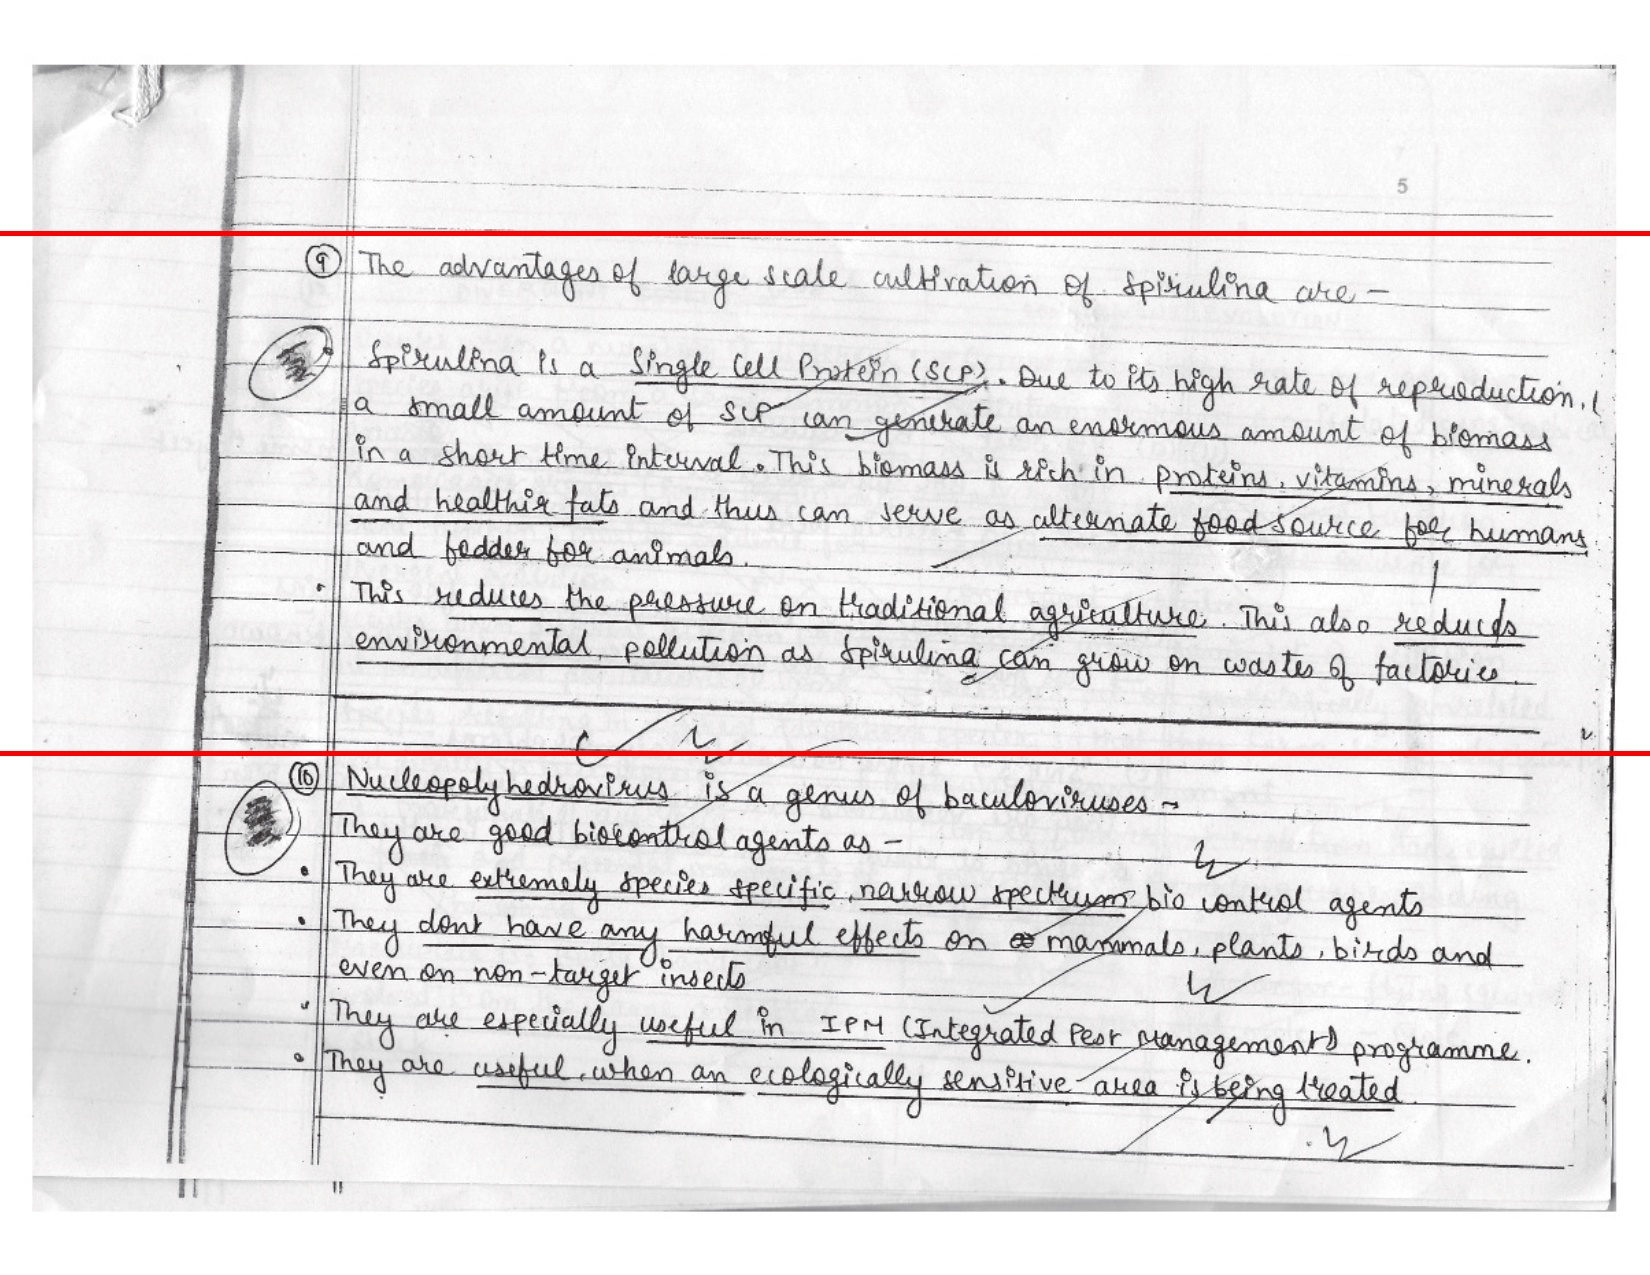 5
9 The advantages of large scale cultivation of Spirulina are -
• Spirulina is a Single Cell Protein (SCP). Due to its high rate of reproduction,
a small amount of SCP can generate an enormous amount of biomass
in a short time interval. This biomass is rich in proteins, vitamins, minerals
and healthir fats and thus can serve as alternate food source for humans
and fodder for animals.
• This reduces the pressure on traditional agriculture. This also reduces
environmental pollution as Spirulina can grow on wastes of factories.
10 Nucleopolyhedrovirus is a genus of baculoviruses -
They are good biocontrol agents as -
• They are extremely species specific, narrow spectrum bio control agents
• They dont have any harmful effects on mammals, plants, birds and
even on non-target insects
• They are especially useful in IPM (Integrated Pest Management) programme.
• They are useful when an ecologically sensitive area is being treated.